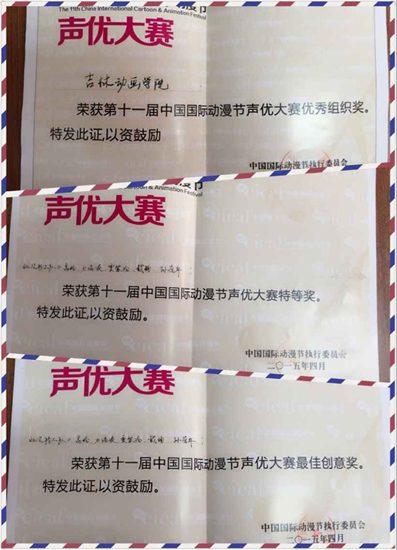 The 11th China International Cartoon & Animation Festival
声优大赛
吉林动画学院
荣获第十一届中国国际动漫节声优大赛优秀组织奖。
特发此证,以资鼓励
中国国际动漫节执行委员会
声优大赛
荣获第十一届中国国际动漫节声优大赛特等奖。
特发此证,以资鼓励。
中国国际动漫节执行委员会
二〇一五年四月
声优大赛
荣获第十一届中国国际动漫节声优大赛最佳创意奖。
特发此证,以资鼓励。
中国国际动漫节执行委员会
二〇一五年四月